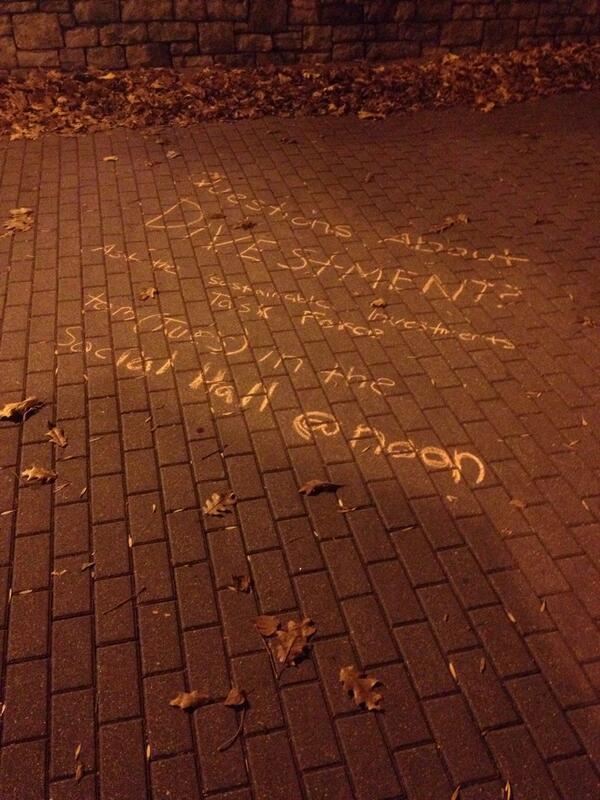 Questions About
DIVESTMENT?
Ask the Sustainable Investments
Task Force
tom (Tues) in the
Social Hall @ Noon